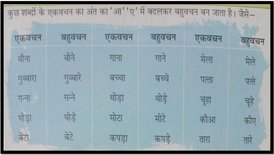 कुछ शब्दों के एकवचन का अंत का 'आ' 'ए' में बदलकर बहुवचन बन जाता है। जैसे–
एकवचन बहुवचन एकवचन बहुवचन एकवचन बहुवचन
बौना बौने गाना गाने मेला मेले
गुब्बारा गुब्बारे बच्चा बच्चे पत्ता पत्ते
गन्ना गन्ने थोड़ा थोड़े चूहा चूहे
घोड़ा घोड़े मोटा मोटे कौआ कौए
बेटा बेटे कपड़ा कपड़े तारा तारे